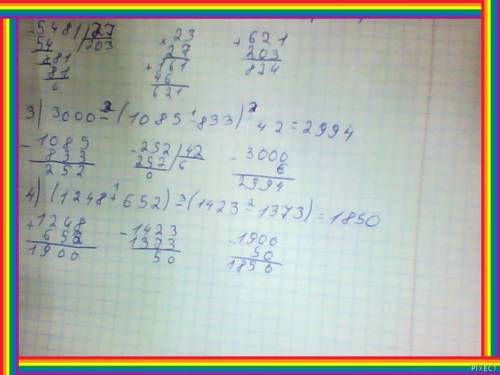 -5481|27 ×23 +621
54 203 27 203
81 +161 824
81 46
0 621
3) 3000 - (1085 - 833) : 42 = 2994
-1085 -252|42 -3000
833 252 6 6
252 0 2994
4) (1248 + 652) - (1423 - 1373) = 1850
+1248 -1423 -1900
652 1373 50
1900 50 1850
PIXECT